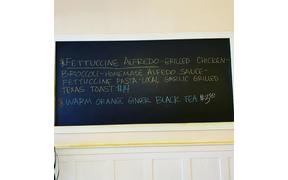 *FETTUCCINE ALFREDO-GRILLED CHICKEN-
BROCCOLI-HOMEMADE ALFEDO SAUCE-
FETTUCCINE PASTA-LOCAL GARLIC GRILLED
TEXAS TOAST $14
*WARM ORANGE GINGER BLACK TEA